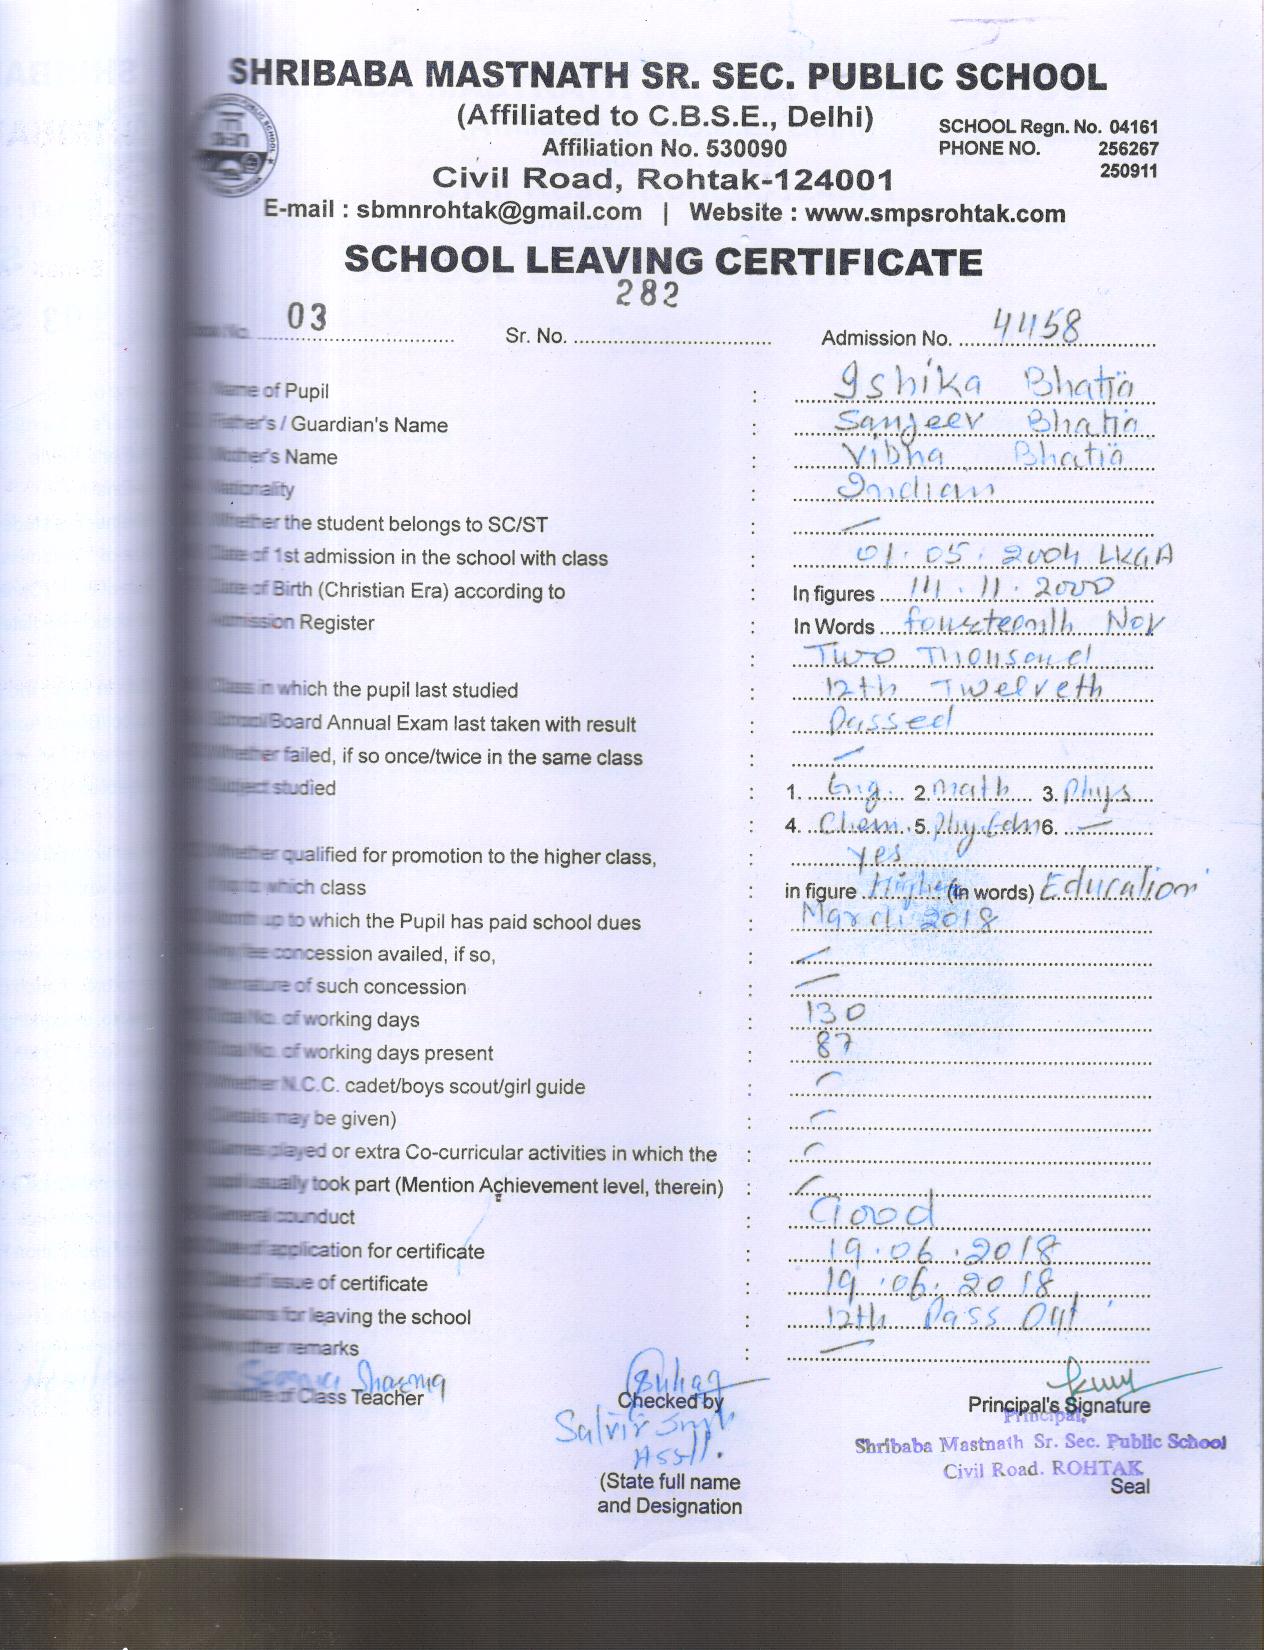 SHRIBABA MASTNATH SR. SEC. PUBLIC SCHOOL
(Affiliated to C.B.S.E., Delhi)
SCHOOL Regn. No. 04161
Affiliation No. 530090
PHONE NO. 256267
250911
Civil Road, Rohtak-124001
E-mail : sbmnrohtak@gmail.com | Website : www.smpsrohtak.com
SCHOOL LEAVING CERTIFICATE
No. 03 Sr. No. 282 Admission No. 4458
Name of Pupil : Ishika Bhatia
Father's / Guardian's Name : Sanjeev Bhatia
Mother's Name : Vibha Bhatia
Nationality : Indian
Whether the student belongs to SC/ST : —
Date of 1st admission in the school with class : 01.05.2004 LKGA
Date of Birth (Christian Era) according to : In figures 14.11.2000
Admission Register : In Words fourteenth Nov
: Two Thousand
Class in which the pupil last studied : 12th Twelveth
School/Board Annual Exam last taken with result : Passed
Whether failed, if so once/twice in the same class : —
Subject studied : 1. Eng. 2. Math 3. Phys
: 4. Chem. 5. Phy. Edn 6. —
Whether qualified for promotion to the higher class, : yes
which class : in figure Higher (in words) Education
Month up to which the Pupil has paid school dues : March 2018
Any fee concession availed, if so, : —
the nature of such concession : —
Total No. of working days : 130
Total No. of working days present : 87
Whether N.C.C. cadet/boys scout/girl guide : —
(Details may be given) : —
Games played or extra Co-curricular activities in which the : —
pupil usually took part (Mention Achievement level, therein) : —
General counduct : Good
Date of application for certificate : 19.06.2018
Date of issue of certificate : 19.06.2018
Reasons for leaving the school : 12th Pass Out
Any other remarks : —
Sharma
Signature of Class Teacher Checked by Principal's Signature
Principal,
Shribaba Mastnath Sr. Sec. Public School
Civil Road. ROHTAK
Asstt.
(State full name Seal
and Designation